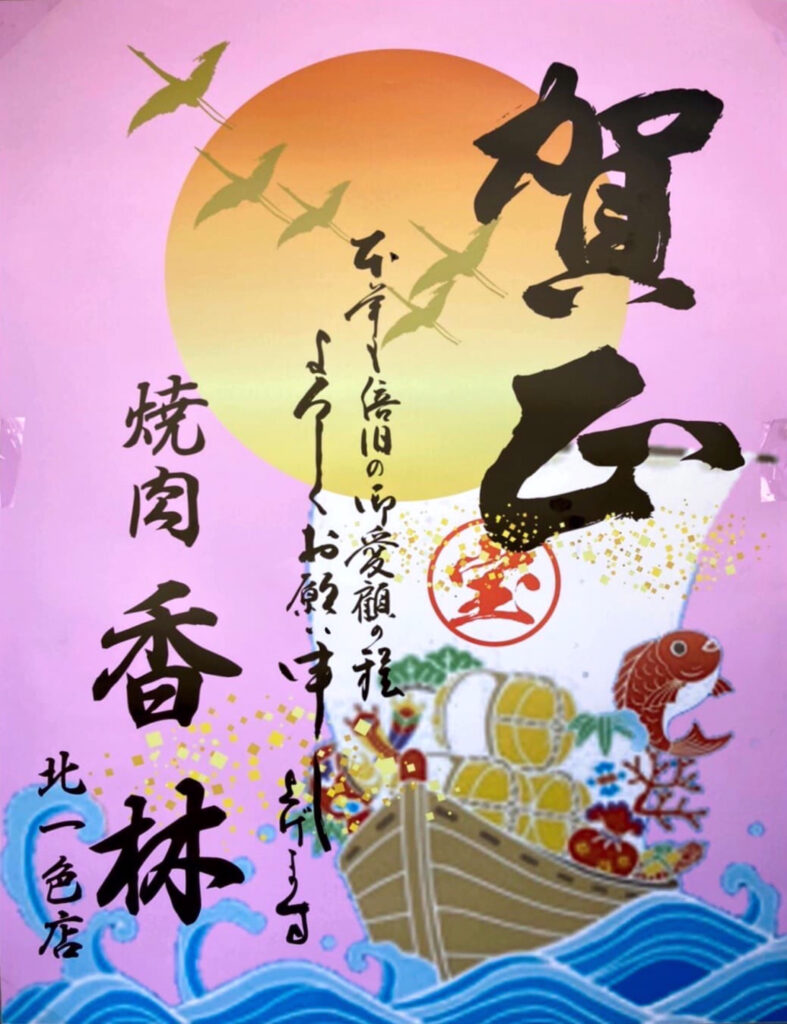 賀正
本年も倍旧の御愛顧の程
よろしくお願い申し上げます
宝
焼肉 香林
北一色店